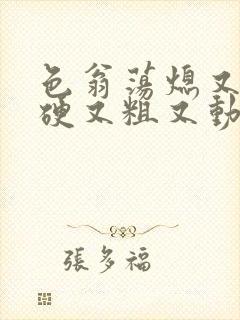 色翁荡熄又
硬又粗又動
張多福